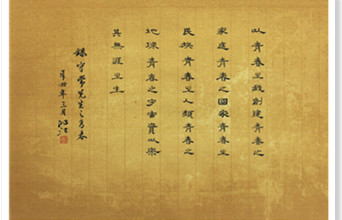 以青春之我創建青春之
家庭青春之國家青春之
民族青春之人類青春之
地球青春之宇宙資以樂
其無涯之生
錄守常先生之青春
年三月